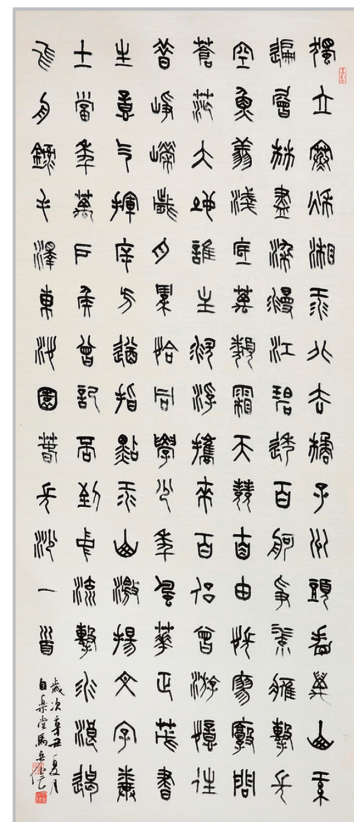 獨立寒秋湘江北去橘子洲頭看萬山紅
遍層林盡染漫江碧透百舸爭流鷹擊長
空魚翔淺底萬類霜天競自由悵寥廓問
蒼茫大地誰主沉浮攜來百侶曾游憶往
昔崢嶸歲月稠恰同學少年風華正茂書
生意氣揮斥方遒指點江山激揚文字糞
土當年萬戶侯曾記否到中流擊水浪遏
飛舟錄毛澤東沁園春長沙一首
歲次辛丑夏月
自樂堂馬